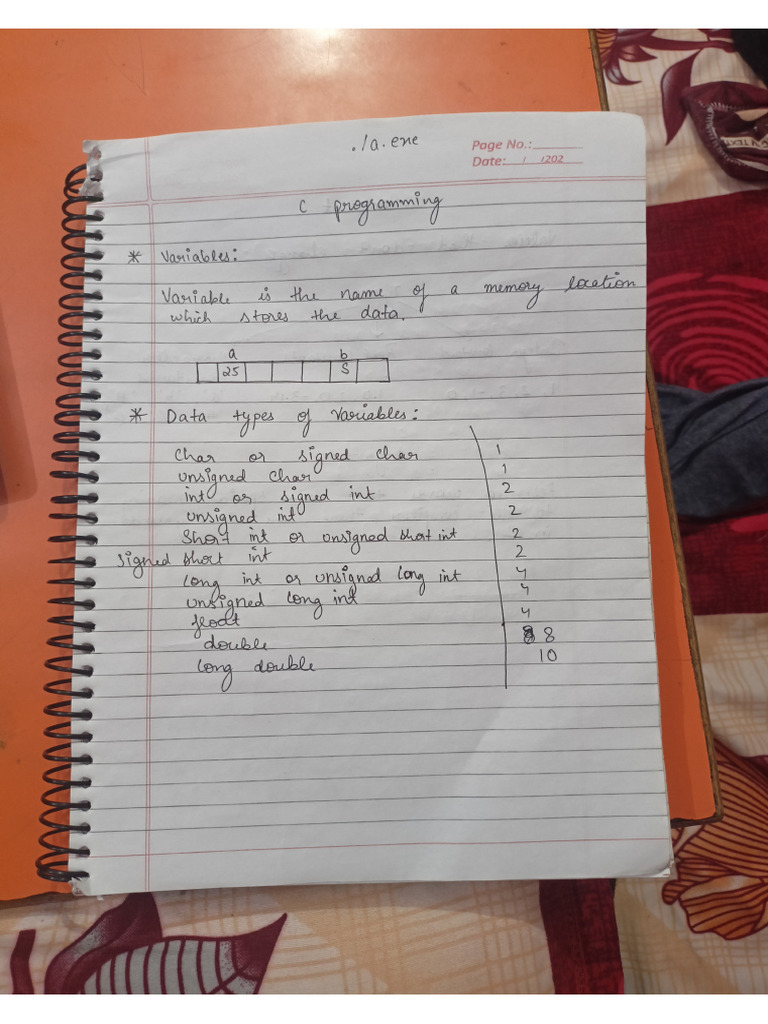 ./a.exe
Page No.:
Date: / /202
C programming
* Variables:
Variable is the name of a memory location
which stores the data.
a b
25 S
* Data types of Variables:
Char or signed char 1
unsigned char 1
int or signed int 2
unsigned int 2
Short int or unsigned short int 2
signed short int 2
Long int or unsigned long int 4
unsigned long int 4
float 4
double 8
long double 10